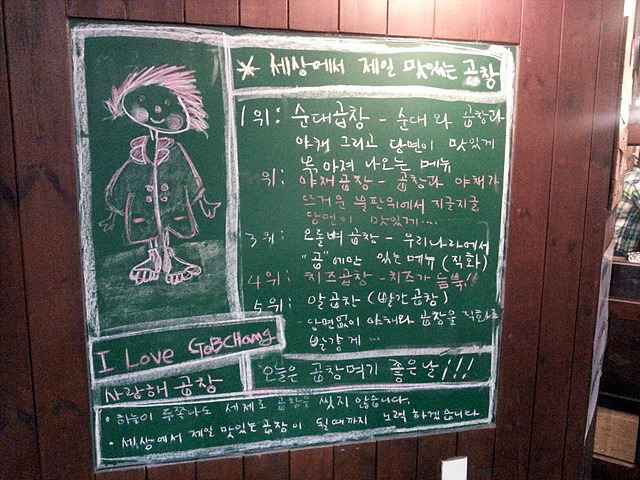 * 세상에서 제일 맛있는 곱창
1위: 순대곱창 - 순대와 곱창과
야채 그리고 당면이 맛있게
볶아져 나오는 메뉴
위: 야채곱창 - 곱창과 야채가
뜨거운 불판위에서 지글지글
당면이 맛있게....
3위: 오돌뼈 곱창 - 우리나라에서
"곱"에만 있는 메뉴 (직화)
4위: 치즈곱창 - 치즈가 듬뿍!!
5위: 알곱창 (빨간곱창)
- 당면없이 야채와 곱창을 직화로
빨갛게 ...
I Love GOBCHang
사랑해 곱창
오늘은 곱창먹기 좋은날!!!
· 하늘이 두쪽나도 세제로 곱창을 씻지 않습니다.
· 세상에서 제일 맛있는 곱창이 될때까지 노력 하겠습니다